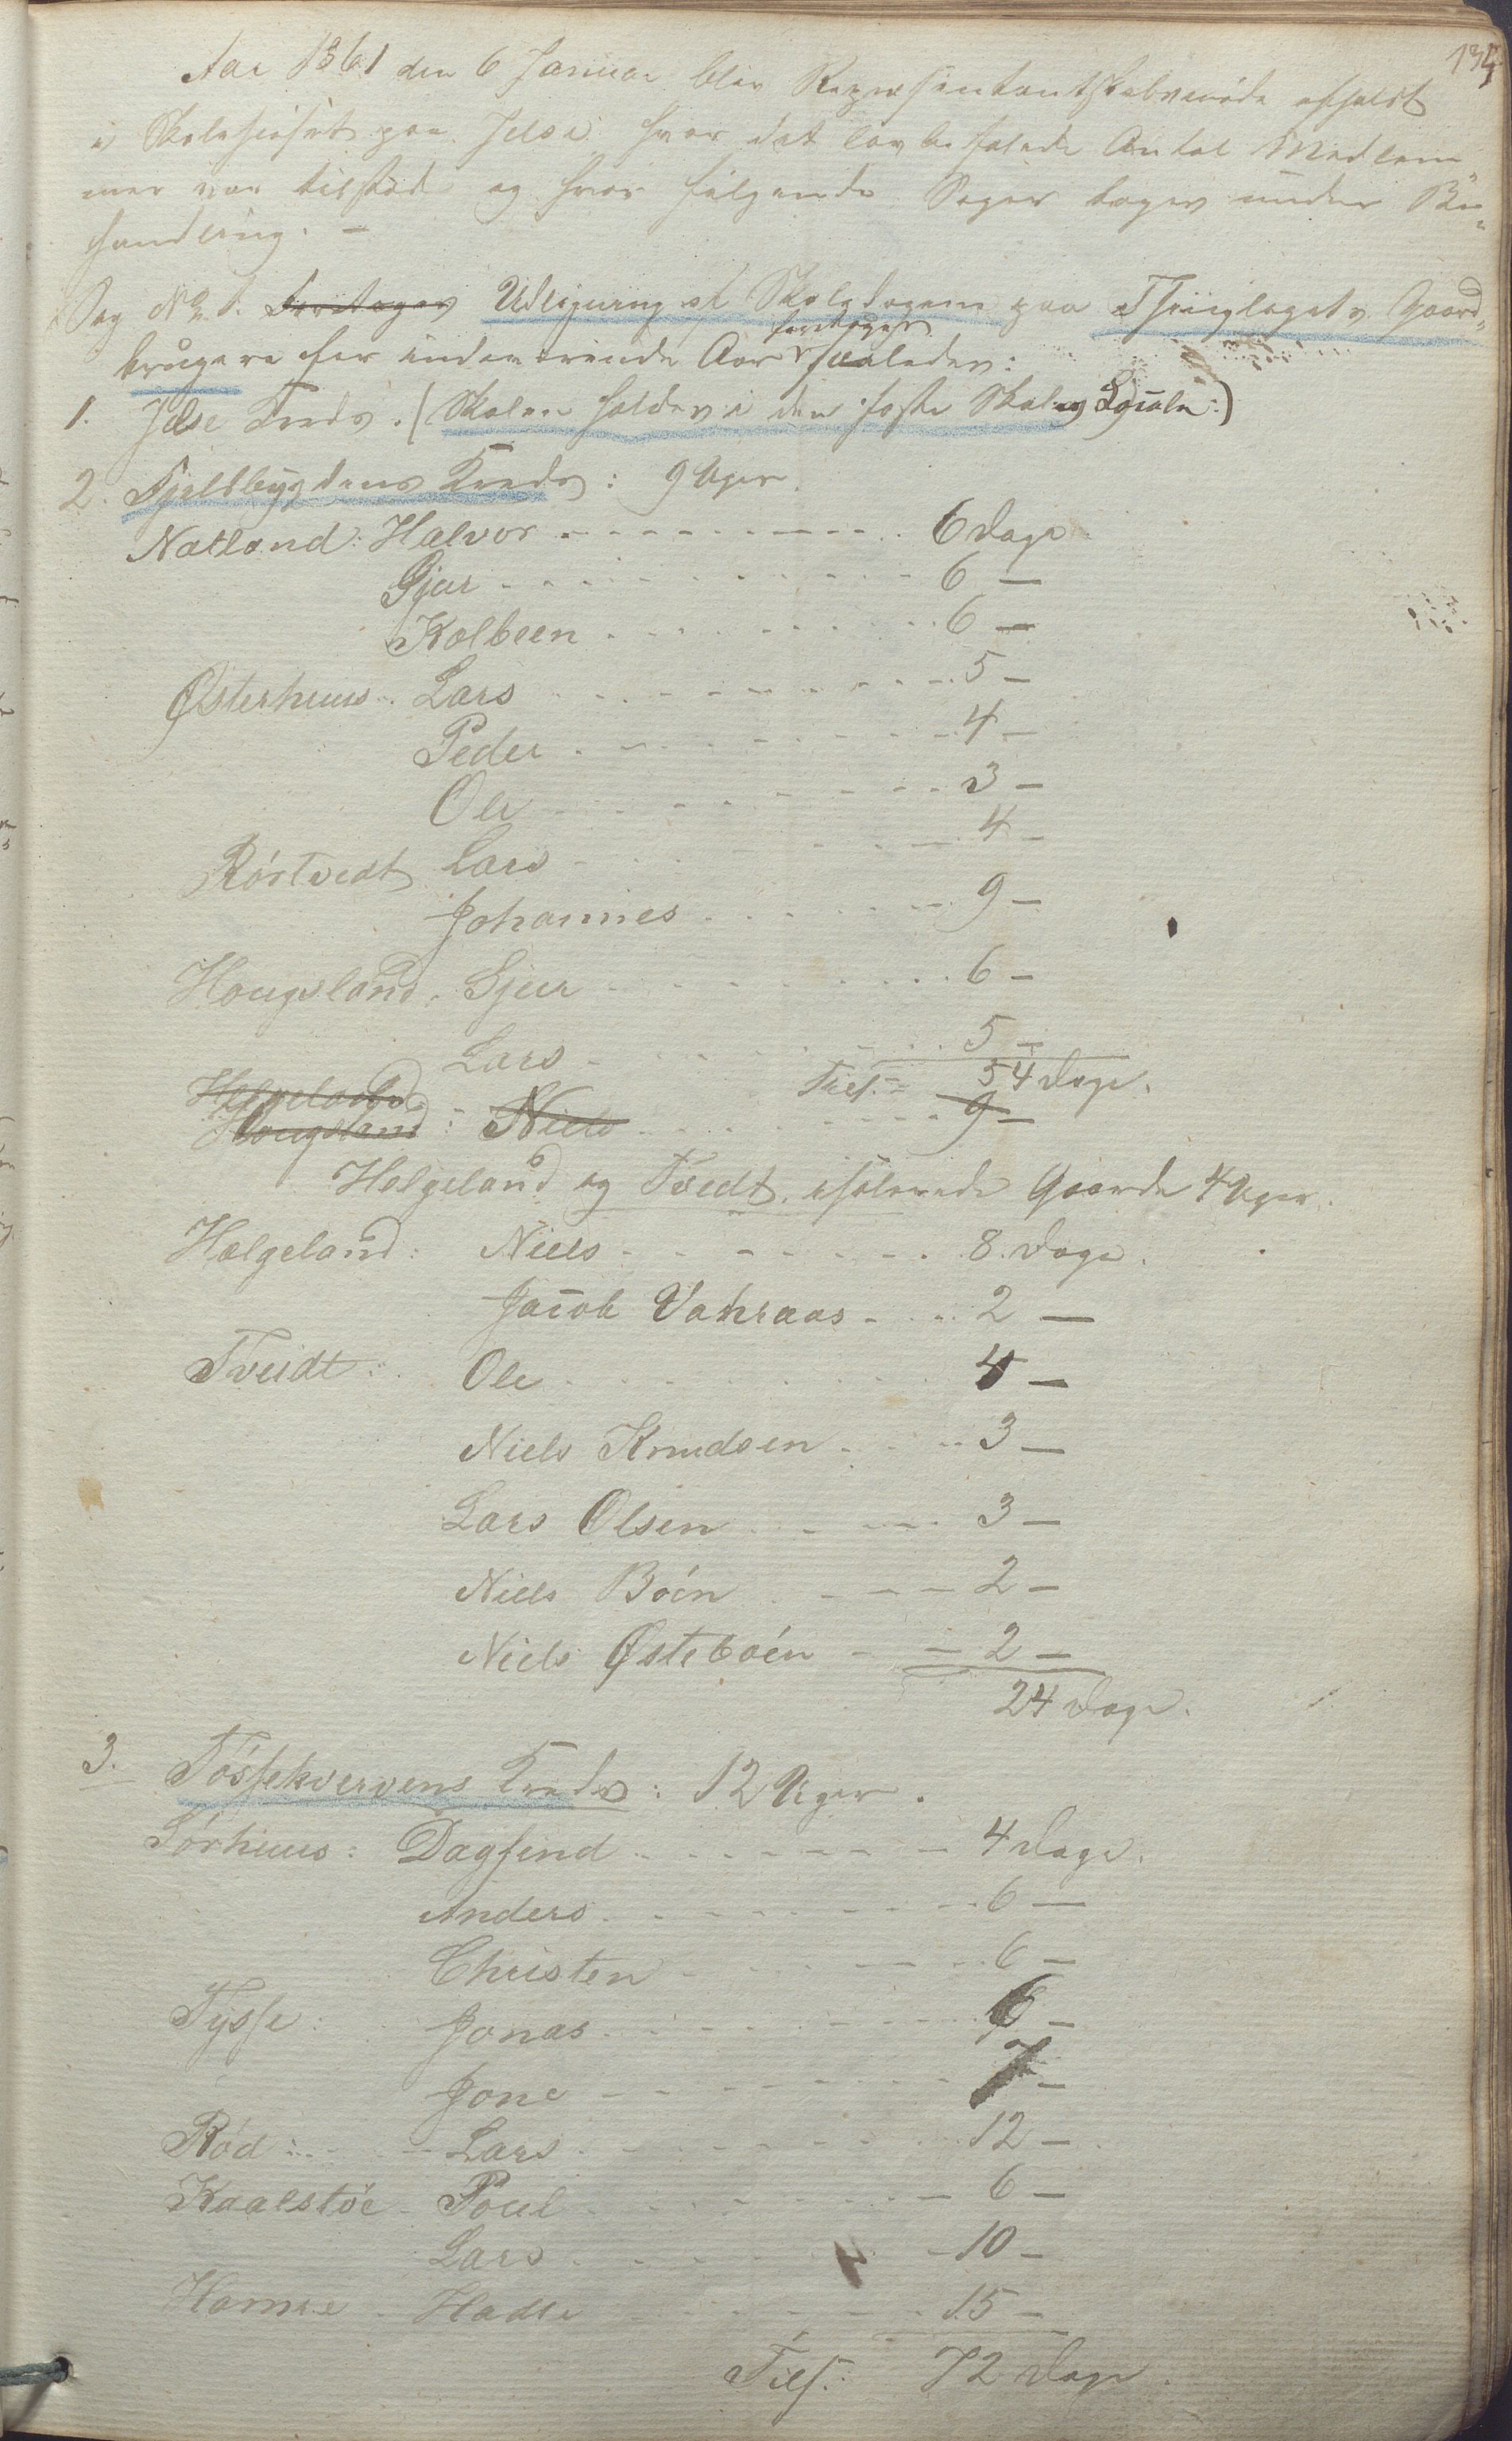 134
Aar 1861 den 6 Januar blev Repræsentantskabsmøde afholdt
i Skolehuset paa Jelse hvor det lovbefalede Antal Medlem-
mer var tilstede og hvor følgende Sager toges under Be-
handling. -
Sag No 1. Foretoges Udligning af Skoledagene paa Thinglagets Gaard-
foretoges
brugere for indeværende Aar saaledes:
1. Jelse Kreds. (Skolen holdes i den faste Skoles Locale.)
2. Fjeldbygdens Kreds: 9 Uger.
Natland: Halvor 6 Dage
Sjur 6 -
Kolbeen 6 -
Østerhuus. Lars 5 -
Peder 4 -
Ole 3 -
Rörtvedt Lars 4 -
Johannes 9 -
Hougsland. Sjur 6 -
Lars 5 -
Tils. 54 Dage.
Helgeland
Hougsland : Niels 9 -
Helgeland og Tvedt. isolerede Gaarde 4 Uger.
Hælgeland: Niels 8 Dage.
Jacob Vahraas 2 -
Tveidt: Ole 4 -
Niels Knudsen 3 -
Lars Olsen 3 -
Niels Böen 2 -
Niels Østeböen 2 -
24 Dage.
3. Tössekvervens Kreds: 12 Uger.
Sörhuus: Dagfind 4 Dage.
Anders 6 -
Christen 6 -
Tysse: Jonas 6 -
Jone 7 -
Röd: Lars 12 -
Kaalstöe Poul 6 -
Lars 10 -
Hamre Hadle 15 -
Tils.: 72 Dage.